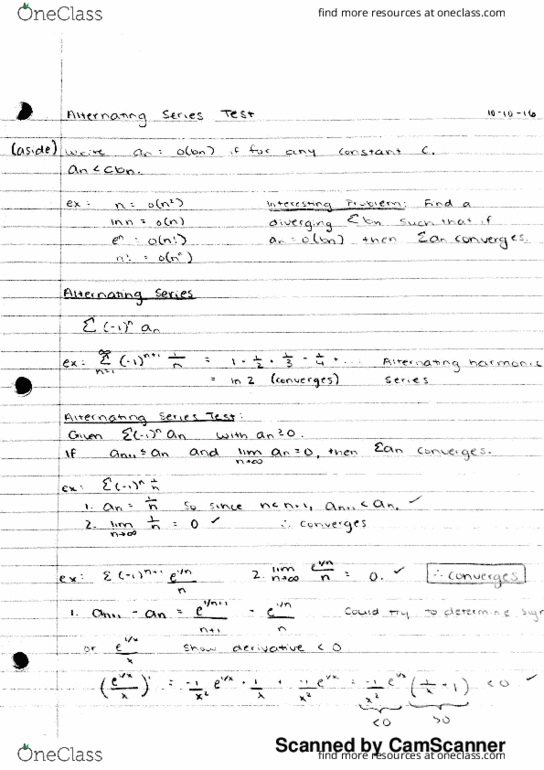 OneClass find more resources at oneclass.com
Alternating Series Test 10-10-16
(aside) Write an = o(bn) if for any constant c.
an < cbn.
ex: n = o(n²) Interesting Problem: Find a
lnn = o(n) diverging Σbn such that if
eⁿ = o(n!) an = o(bn) then Σan converges.
n! = o(nⁿ)
Alternating Series
Σ(-1)ⁿ an
ex: ∞Σn=1 (-1)ⁿ⁺¹ 1/n = 1 - 1/2 + 1/3 - 1/4 + ... Alternating harmonic
= ln 2 (converges) series
Alternating Series Test:
Given Σ(-1)ⁿ an with an ≥ 0.
If an+1 ≤ an and lim n→∞ an = 0, then Σan converges.
ex: Σ(-1)ⁿ 1/n
1. an = 1/n so since n < n+1, an+1 < an. ✓
2. lim n→∞ 1/n = 0 ✓ ∴ converges
ex: Σ(-1)ⁿ⁺¹ e^(1/n)/n 2. lim n→∞ e^(1/n)/n = 0. ✓ ∴ converges
1. an+1 - an = e^(1/n+1)/(n+1) - e^(1/n)/n Could try to determine sign
or e^(1/x)/x show derivative < 0
(e^(1/x)/x)' = -1/x² e^(1/x) · 1/x + -1/x² e^(1/x) = -1/x² e^(1/x) (1/x + 1) < 0 ✓
<0 >0
Scanned by CamScanner
OneClass find more resources at oneclass.com